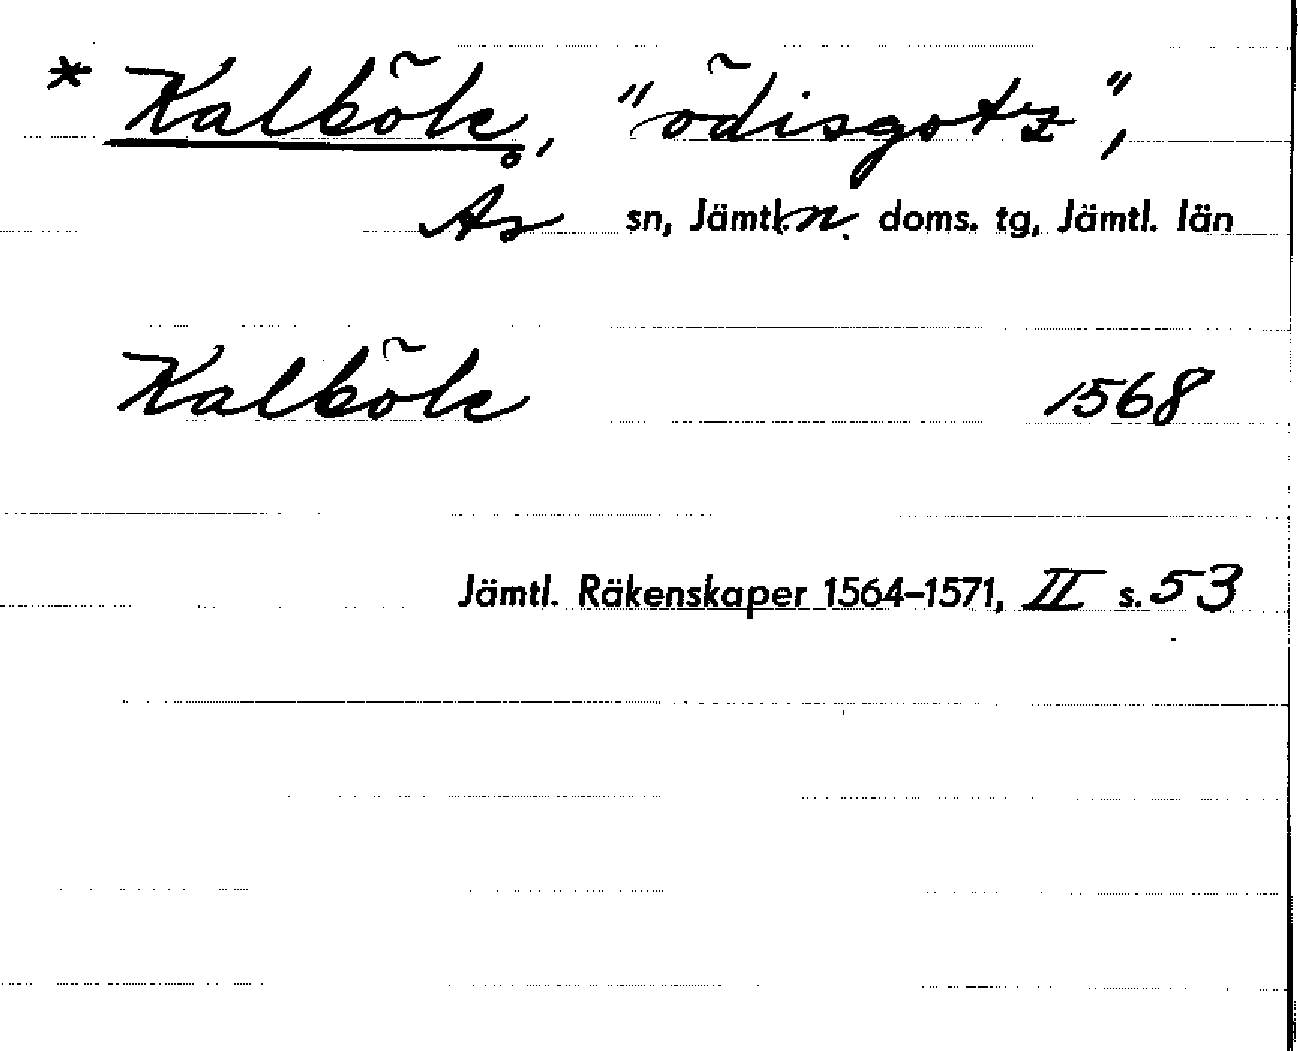 * Kalböle, "ödisgotz",
Ås sn, Jämtl. n. doms. tg, Jämtl. län
Kalböle 1568
Jämtl. Räkenskaper 1564–1571, II s. 53